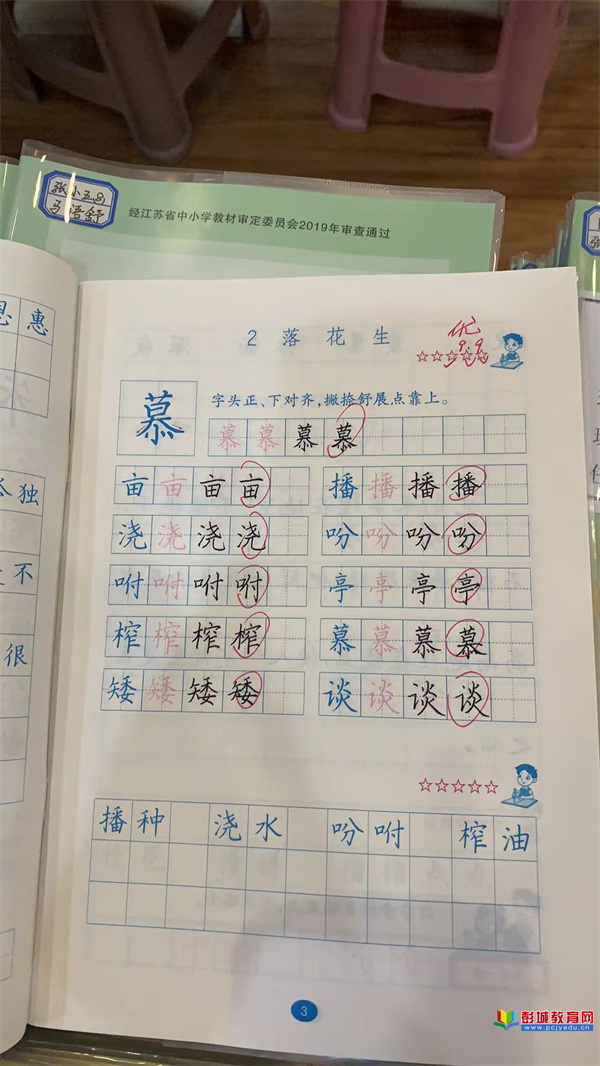 张小五8
马语舒
经江苏省中小学教材审定委员会2019年审查通过
惠
独
不
很
2 落花生
优
9.9
☆☆☆☆☆
慕
字头正、下对齐,撇捺舒展点靠上。
慕 慕 慕 慕
亩 亩 亩 亩 播 播 播 播
浇 浇 浇 浇 吩 吩 吩 吩
咐 咐 咐 咐 亭 亭 亭 亭
榨 榨 榨 榨 慕 慕 慕 慕
矮 矮 矮 矮 谈 谈 谈 谈
☆☆☆☆☆
播种 浇水 吩咐 榨油
3
彭城教育网
www.pcjyedu.cn